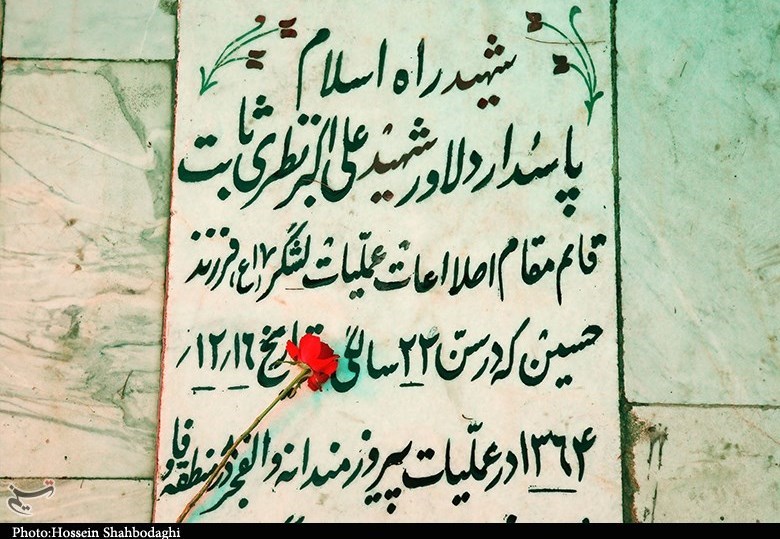 شهید راه اسلام
پاسدار دلاور شهید علی اکبر نظری ثابت
قائم مقام اطلاعات عملیات لشگر ۱۷(ع) فرزند
حسین که در سن ۲۲ سالگی تاریخ ۱۲٫۱۶٫
۱۳۶۴ در عملیات پیروزمندانه والفجر در منطقه فاو
تسنیم
Photo:Hossein Shahbodaghi